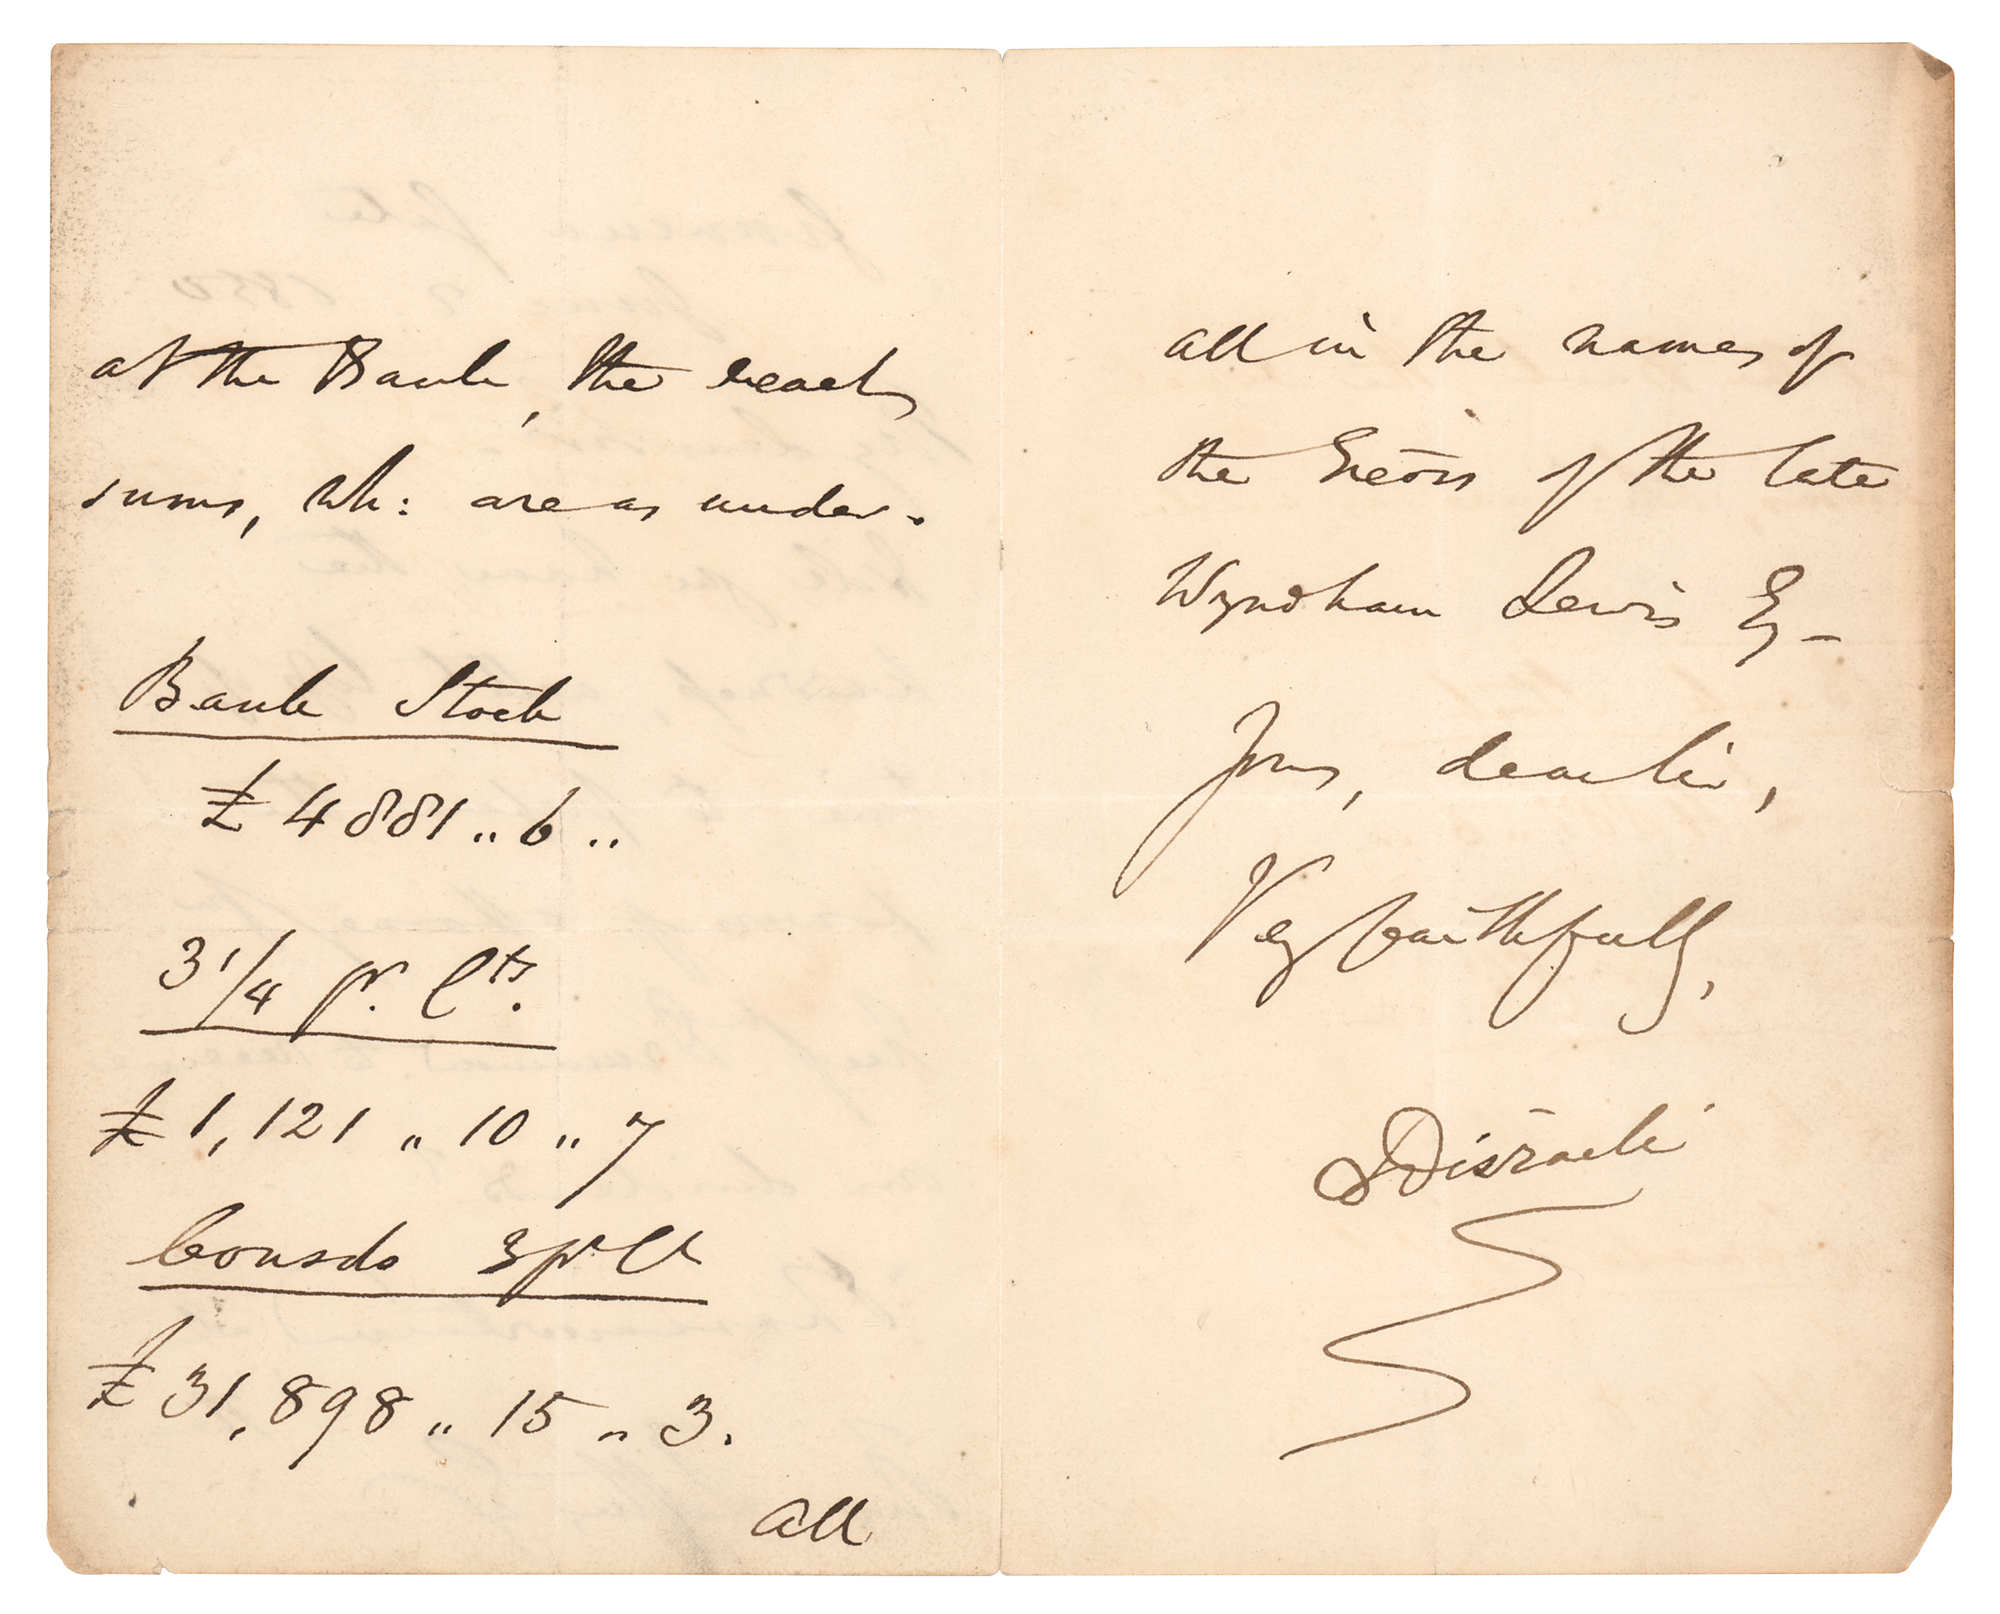 at the Bank, the exact
sums, wh: are as under.
Bank Stock
£ 4881 ,, 6 ,,
3 1/4 pr. Cts.
£ 1,121 ,, 10 ,, 7
Consols 3 pr Ct
£ 31,898 ,, 15 ,, 3.
all
all in the names of
the Exōrs of the late
Wyndham Lewis Esq –
Yours, dear Sir,
Very faithfully,
B Disraeli